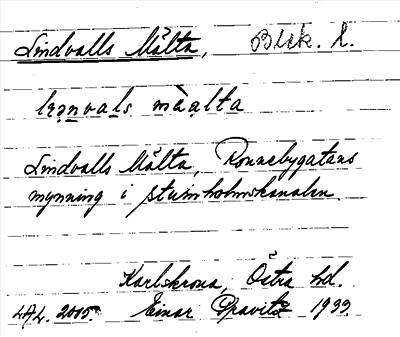 Lindvalls Mälta, Blek. l.
mà̀alta
Lindvalls Mälta, Ronnebygatans
mynning i stumholmskanalen.
Karlskrona, Östra hd.
LAL. 2005. Einar 1933.